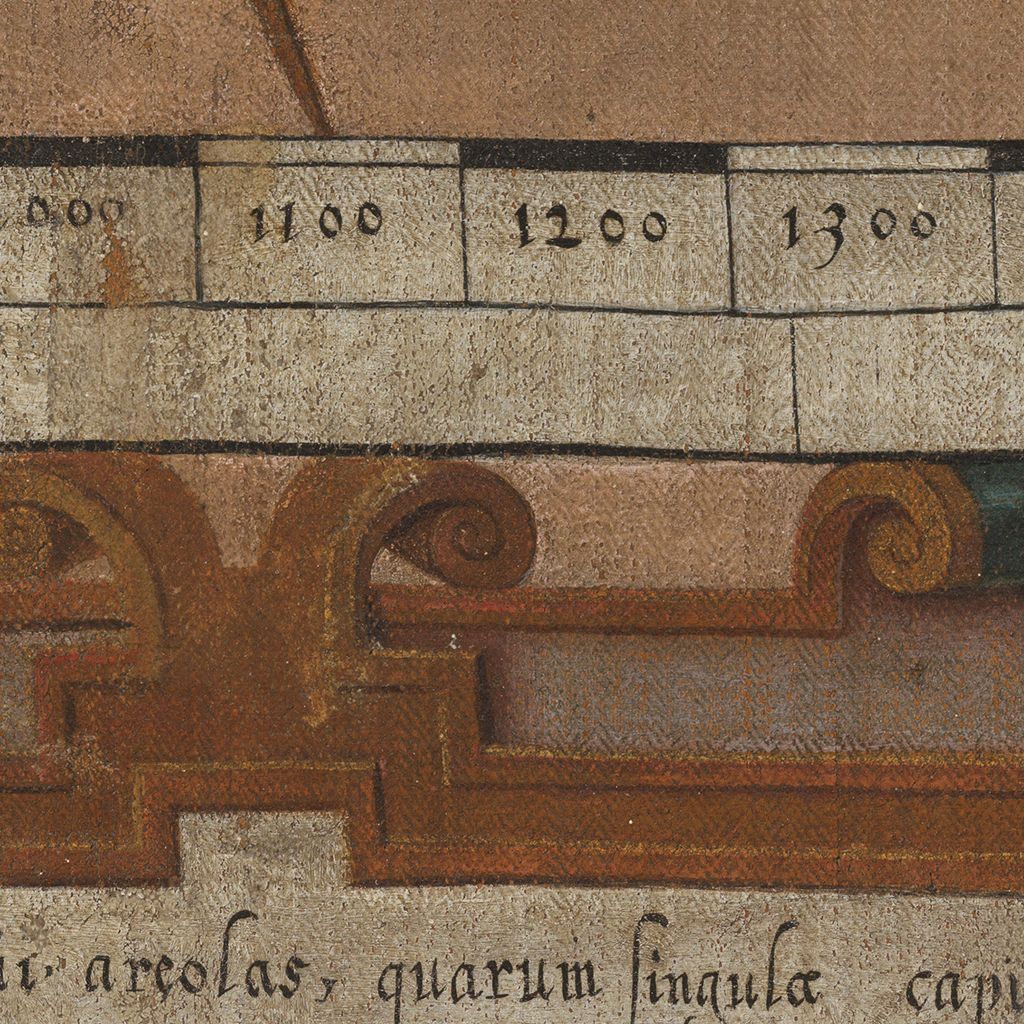 000 1100 1200 1300
areolas, quarum singulæ